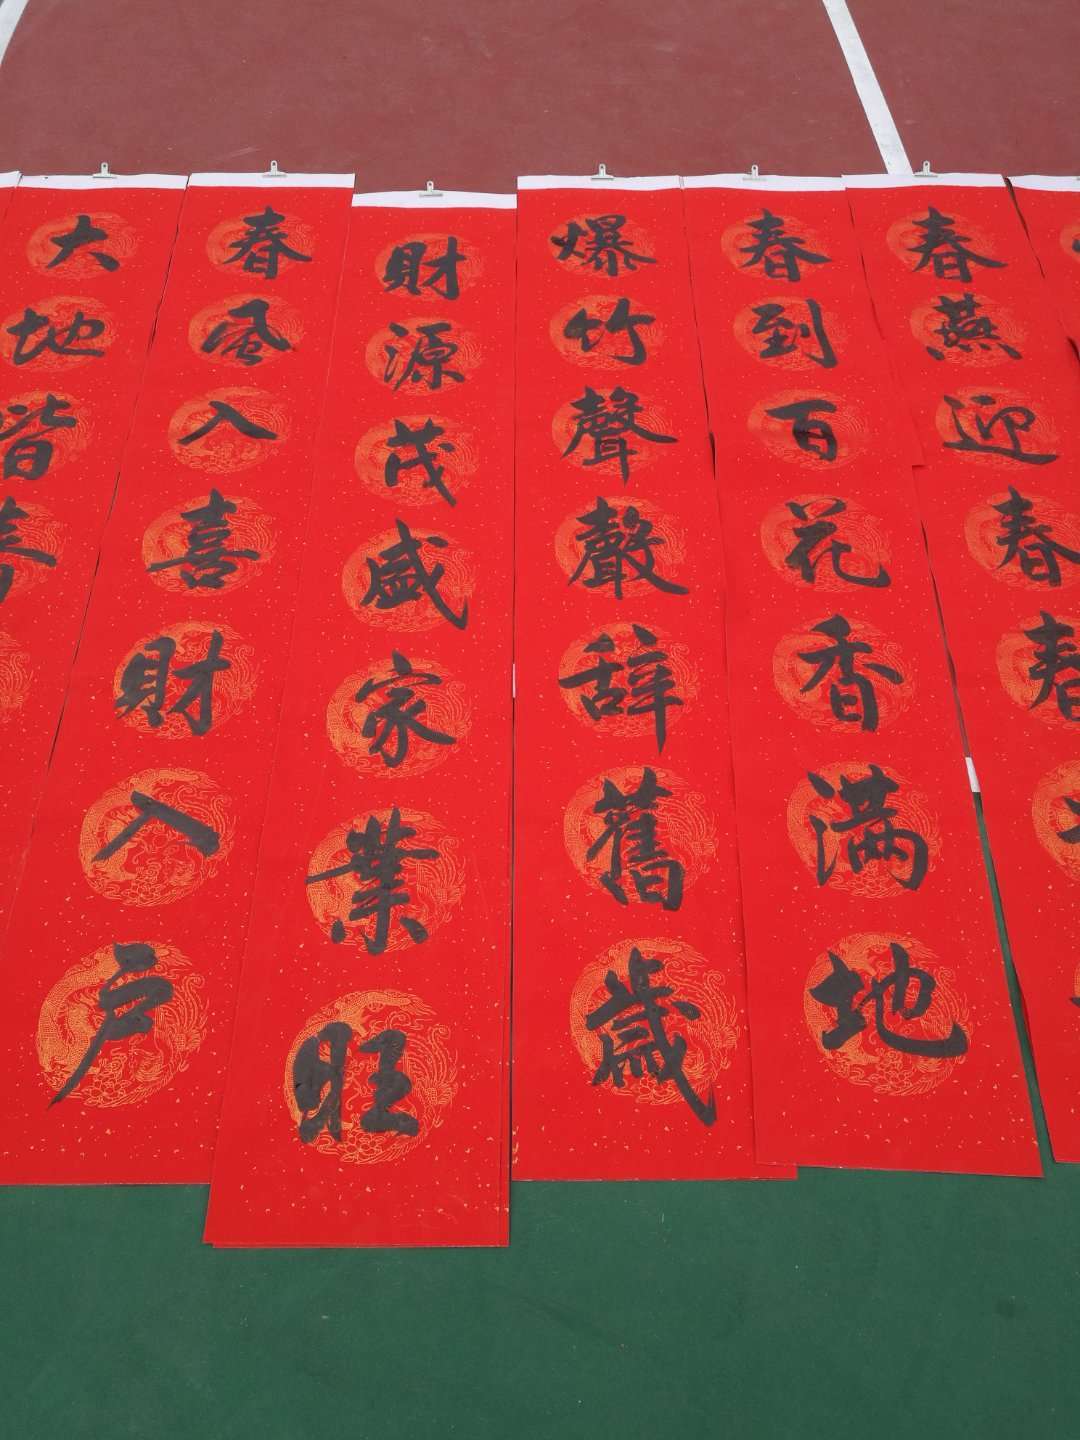 春燕迎春春
春到百花香满地
爆竹聲聲辞舊歲
財源茂盛家業旺
春風入喜財入户
大地皆春